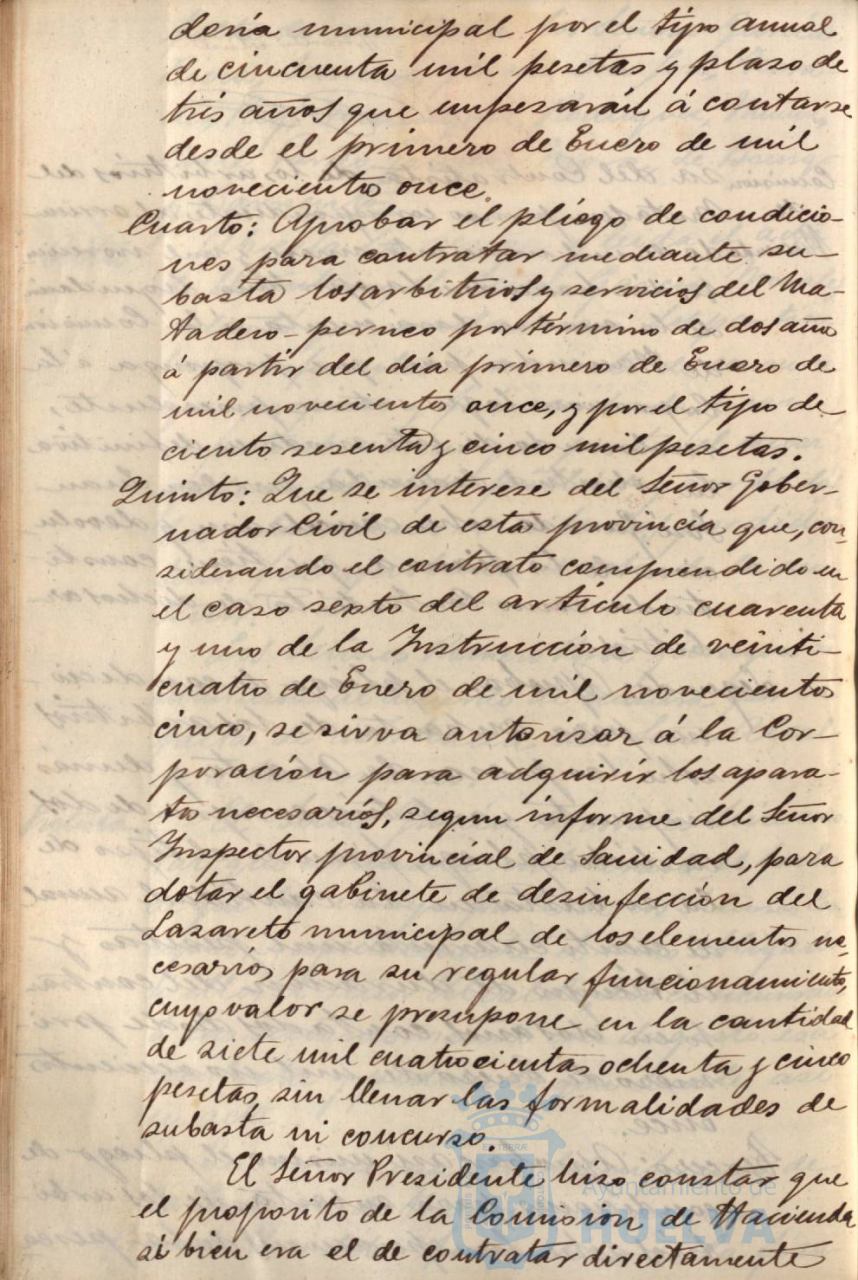 deria municipal por el tipo anual
de cincuenta mil pesetas y plazo de
tres años que empezarán á contarse
desde el primero de Enero de mil
novecientos once.
Cuarto: Aprobar el pliego de condicio-
nes para contratar mediante su-
basta los arbitrios y servicios del Ma-
tadero-perneo por término de dos años
á partir del dia primero de Enero de
mil novecientos once, y por el tipo de
ciento sesenta y cinco mil pesetas.
Quinto: Que se interese del Señor Gober-
nador Civil de esta provincia que, con-
siderando el contrato comprendido en
el caso sexto del artículo cuarenta
y uno de la Instrucción de veinti-
cuatro de Enero de mil novecientos
cinco, se sirva autorizar á la Cor-
poración para adquirir los apara-
tos necesarios, segun informe del Señor
Inspector provincial de Sanidad, para
dotar el gabinete de desinfección del
Lazareto municipal de los elementos ne-
cesarios para su regular funcionamiento,
cuyo valor se presupone en la cantidad
de siete mil cuatrocientas ochenta y cinco
pesetas, sin llenar las formalidades de
subasta ni concurso.
El Señor Presidente hizo constar que
el proposito de la Comision de Hacienda
si bien era el de contratar directamente
Ayuntamiento de
HUELVA